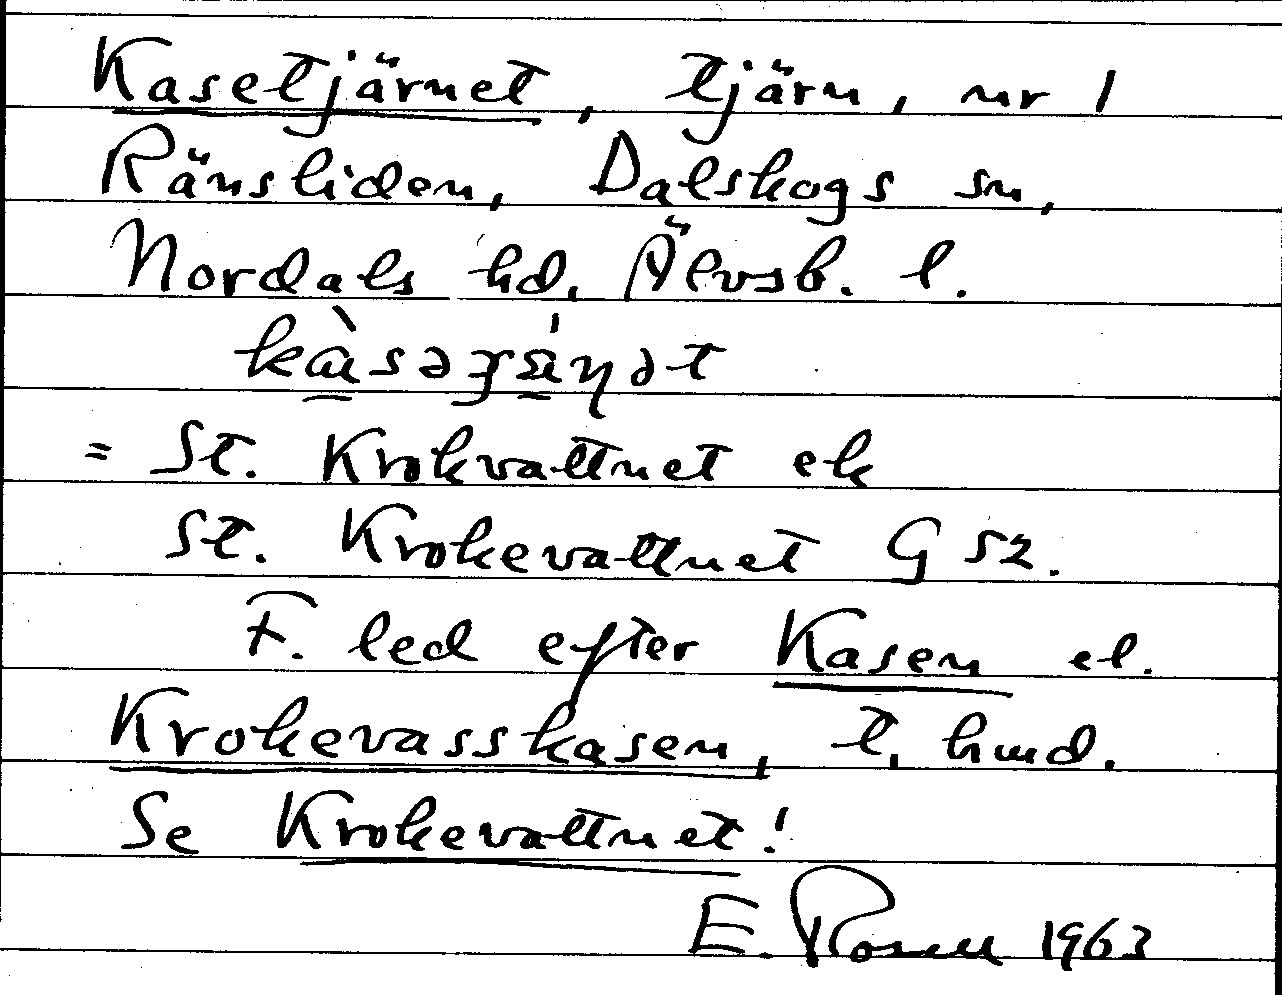 Kasetjärnet, tjärn, nr 1
Ränsliden, Dalskogs sn,
Nordals hd, Älvsb. l.
= St. Krokvattnet ek
St. Krokevattnet G 52.
F. led efter Kasen el.
Krokevasskasen, t. hmd.
Se Krokevattnet!
E. Rosell 1963